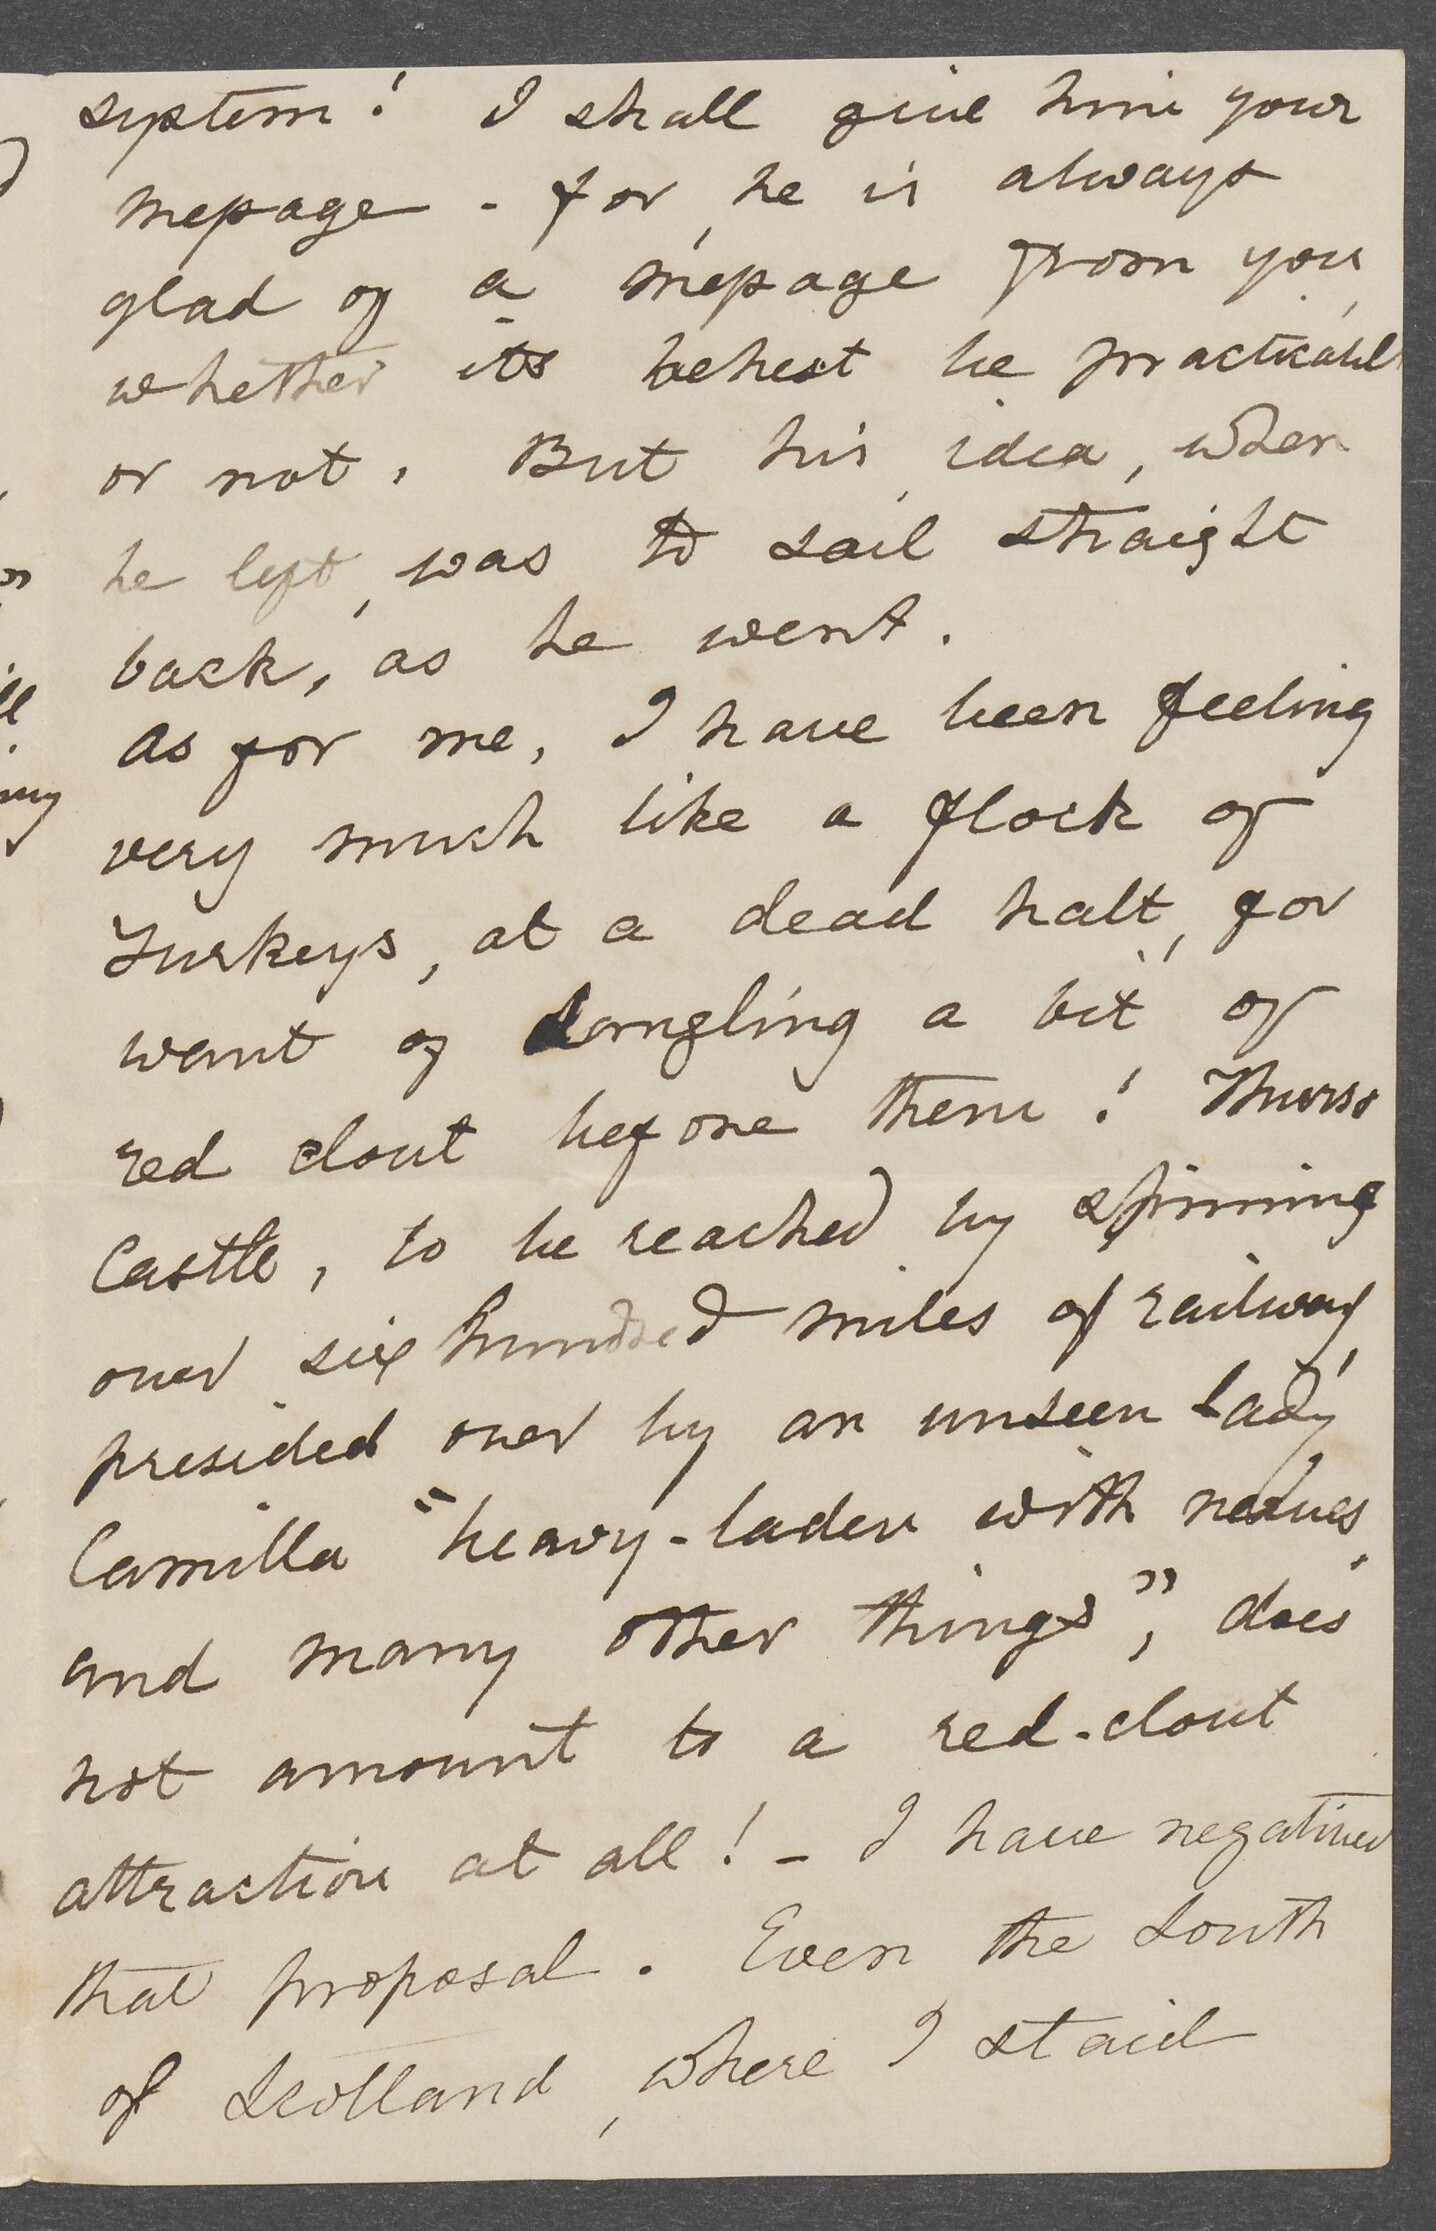 system! I shall give him your
message - for, he is always
glad of a message from you,
whether its behest be practicable
or not. But his idea, when
he left, was to sail straight
back, as he went.
As for me, I have been feeling
very much like a flock of
Turkeys, at a dead halt, for
want of dangling a bit of
red clout before them! Thurso
Castle, to be reached by spinning
over six hundred miles of railway,
presided over by an unseen Lady
Camilla "heavy-laden with nerves,
and many other things", does
not amount to a red-clout
attraction at all! - I have negatived
that proposal. Even the South
of Scotland, where I staid